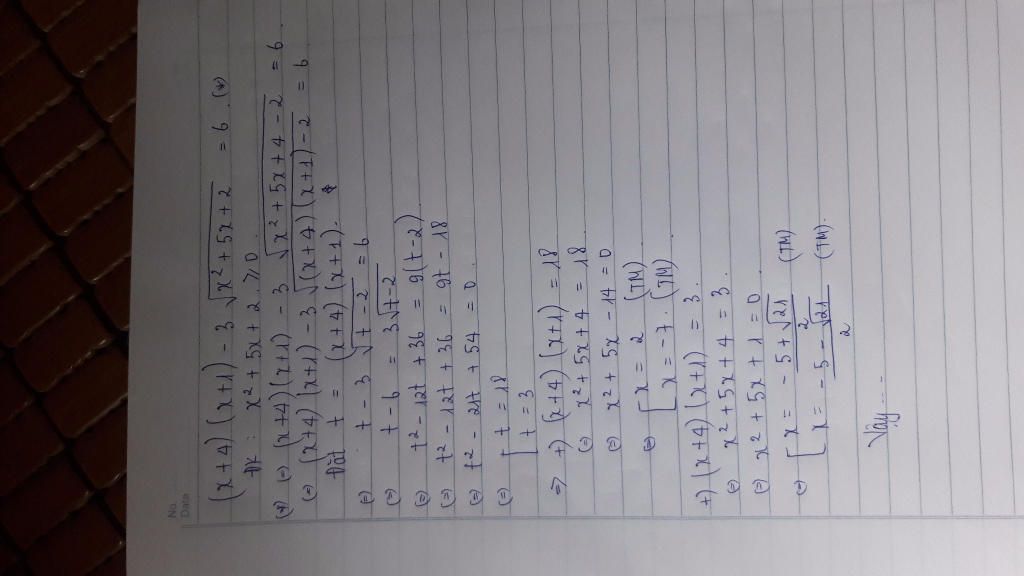 No.
Date
(x+4)(x+1) - 3√(x²+5x+2) = 6 (*)
ĐK: x²+5x+2 ≥ 0
(*) (=) (x+4)(x+1) - 3√(x²+5x+4-2) = 6
(=) (x+4)(x+1) - 3√((x+4)(x+1)-2) = 6
Đặt t = (x+4)(x+1).
(=) t - 3√(t-2) = 6
(=) t - 6 = 3√(t-2)
(=) t² - 12t + 36 = 9(t-2)
(=) t² - 12t + 36 = 9t - 18
(=) t² - 21t + 54 = 0
(=) [ t = 18
[ t = 3
=> +) (x+4)(x+1) = 18
(=) x² + 5x + 4 = 18
(=) x² + 5x - 14 = 0
(=) [ x = 2 (TM)
[ x = -7. (TM)
+) (x+4)(x+1) = 3.
(=) x² + 5x + 4 = 3.
(=) x² + 5x + 1 = 0
(=) [ x = (-5+√21)/2 (TM)
[ x = (-5-√21)/2 (TM).
Vậy....